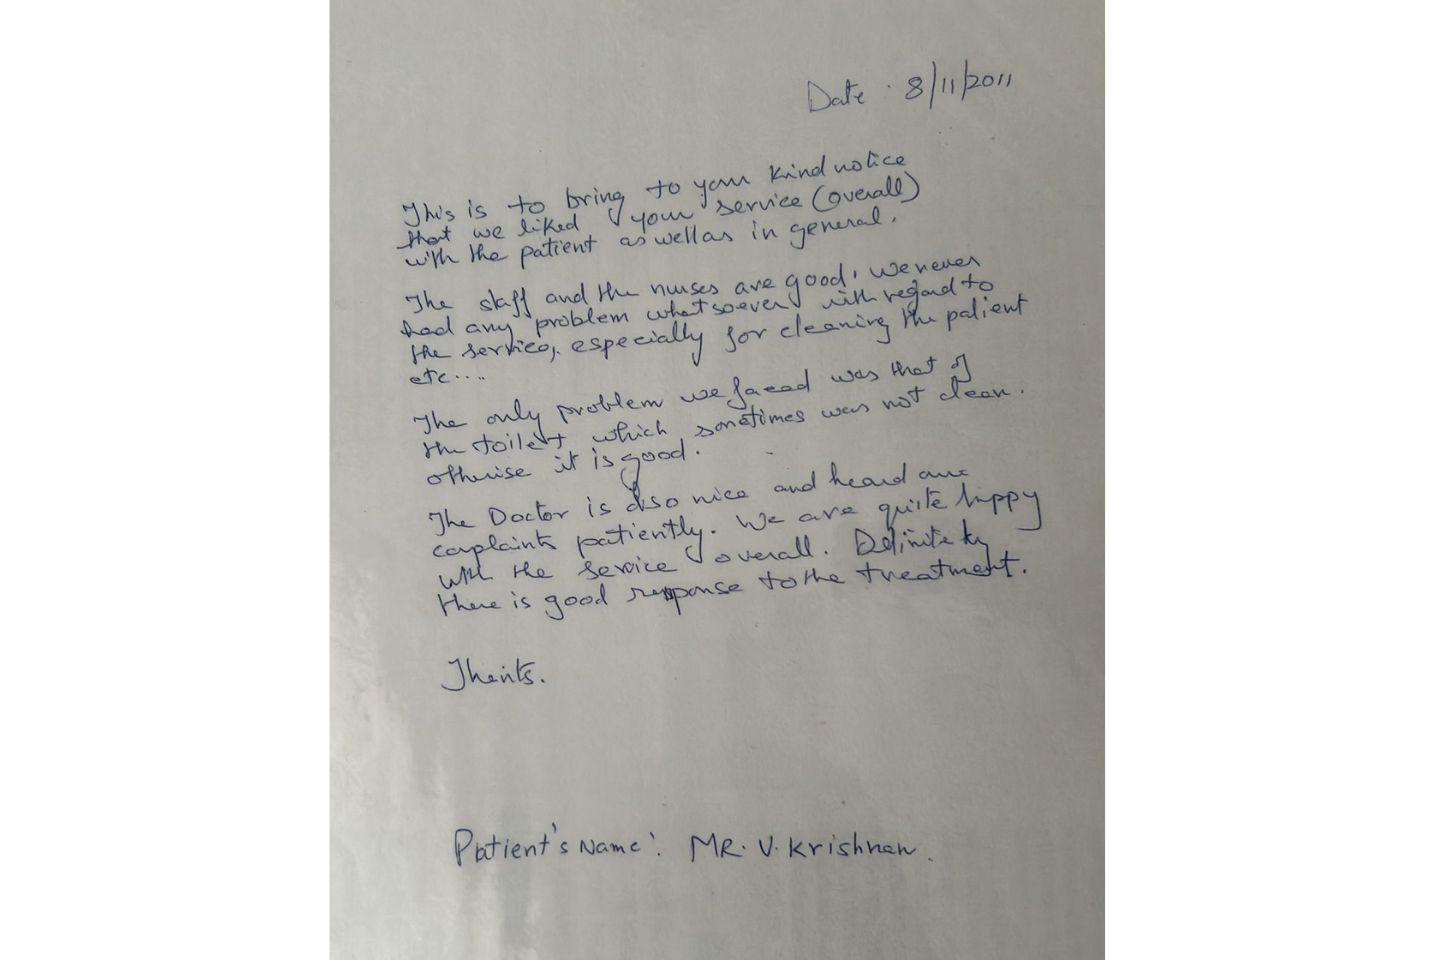 Date : 8/11/2011
This is to bring to your kind notice
that we liked your service (overall)
with the patient as well as in general.
The staff and the nurses are good, we never
had any problem whatsoever with regard to
the services, especially for cleaning the patient
etc....
The only problem we faced was that of
the toilet which sometimes was not clean.
otherise it is good.
The Doctor is also nice and heard our
complaints patiently. We are quite happy
with the service overall. Definitely
there is good response to the treatment.
Thanks.
Patient's Name: MR. V. Krishnan.